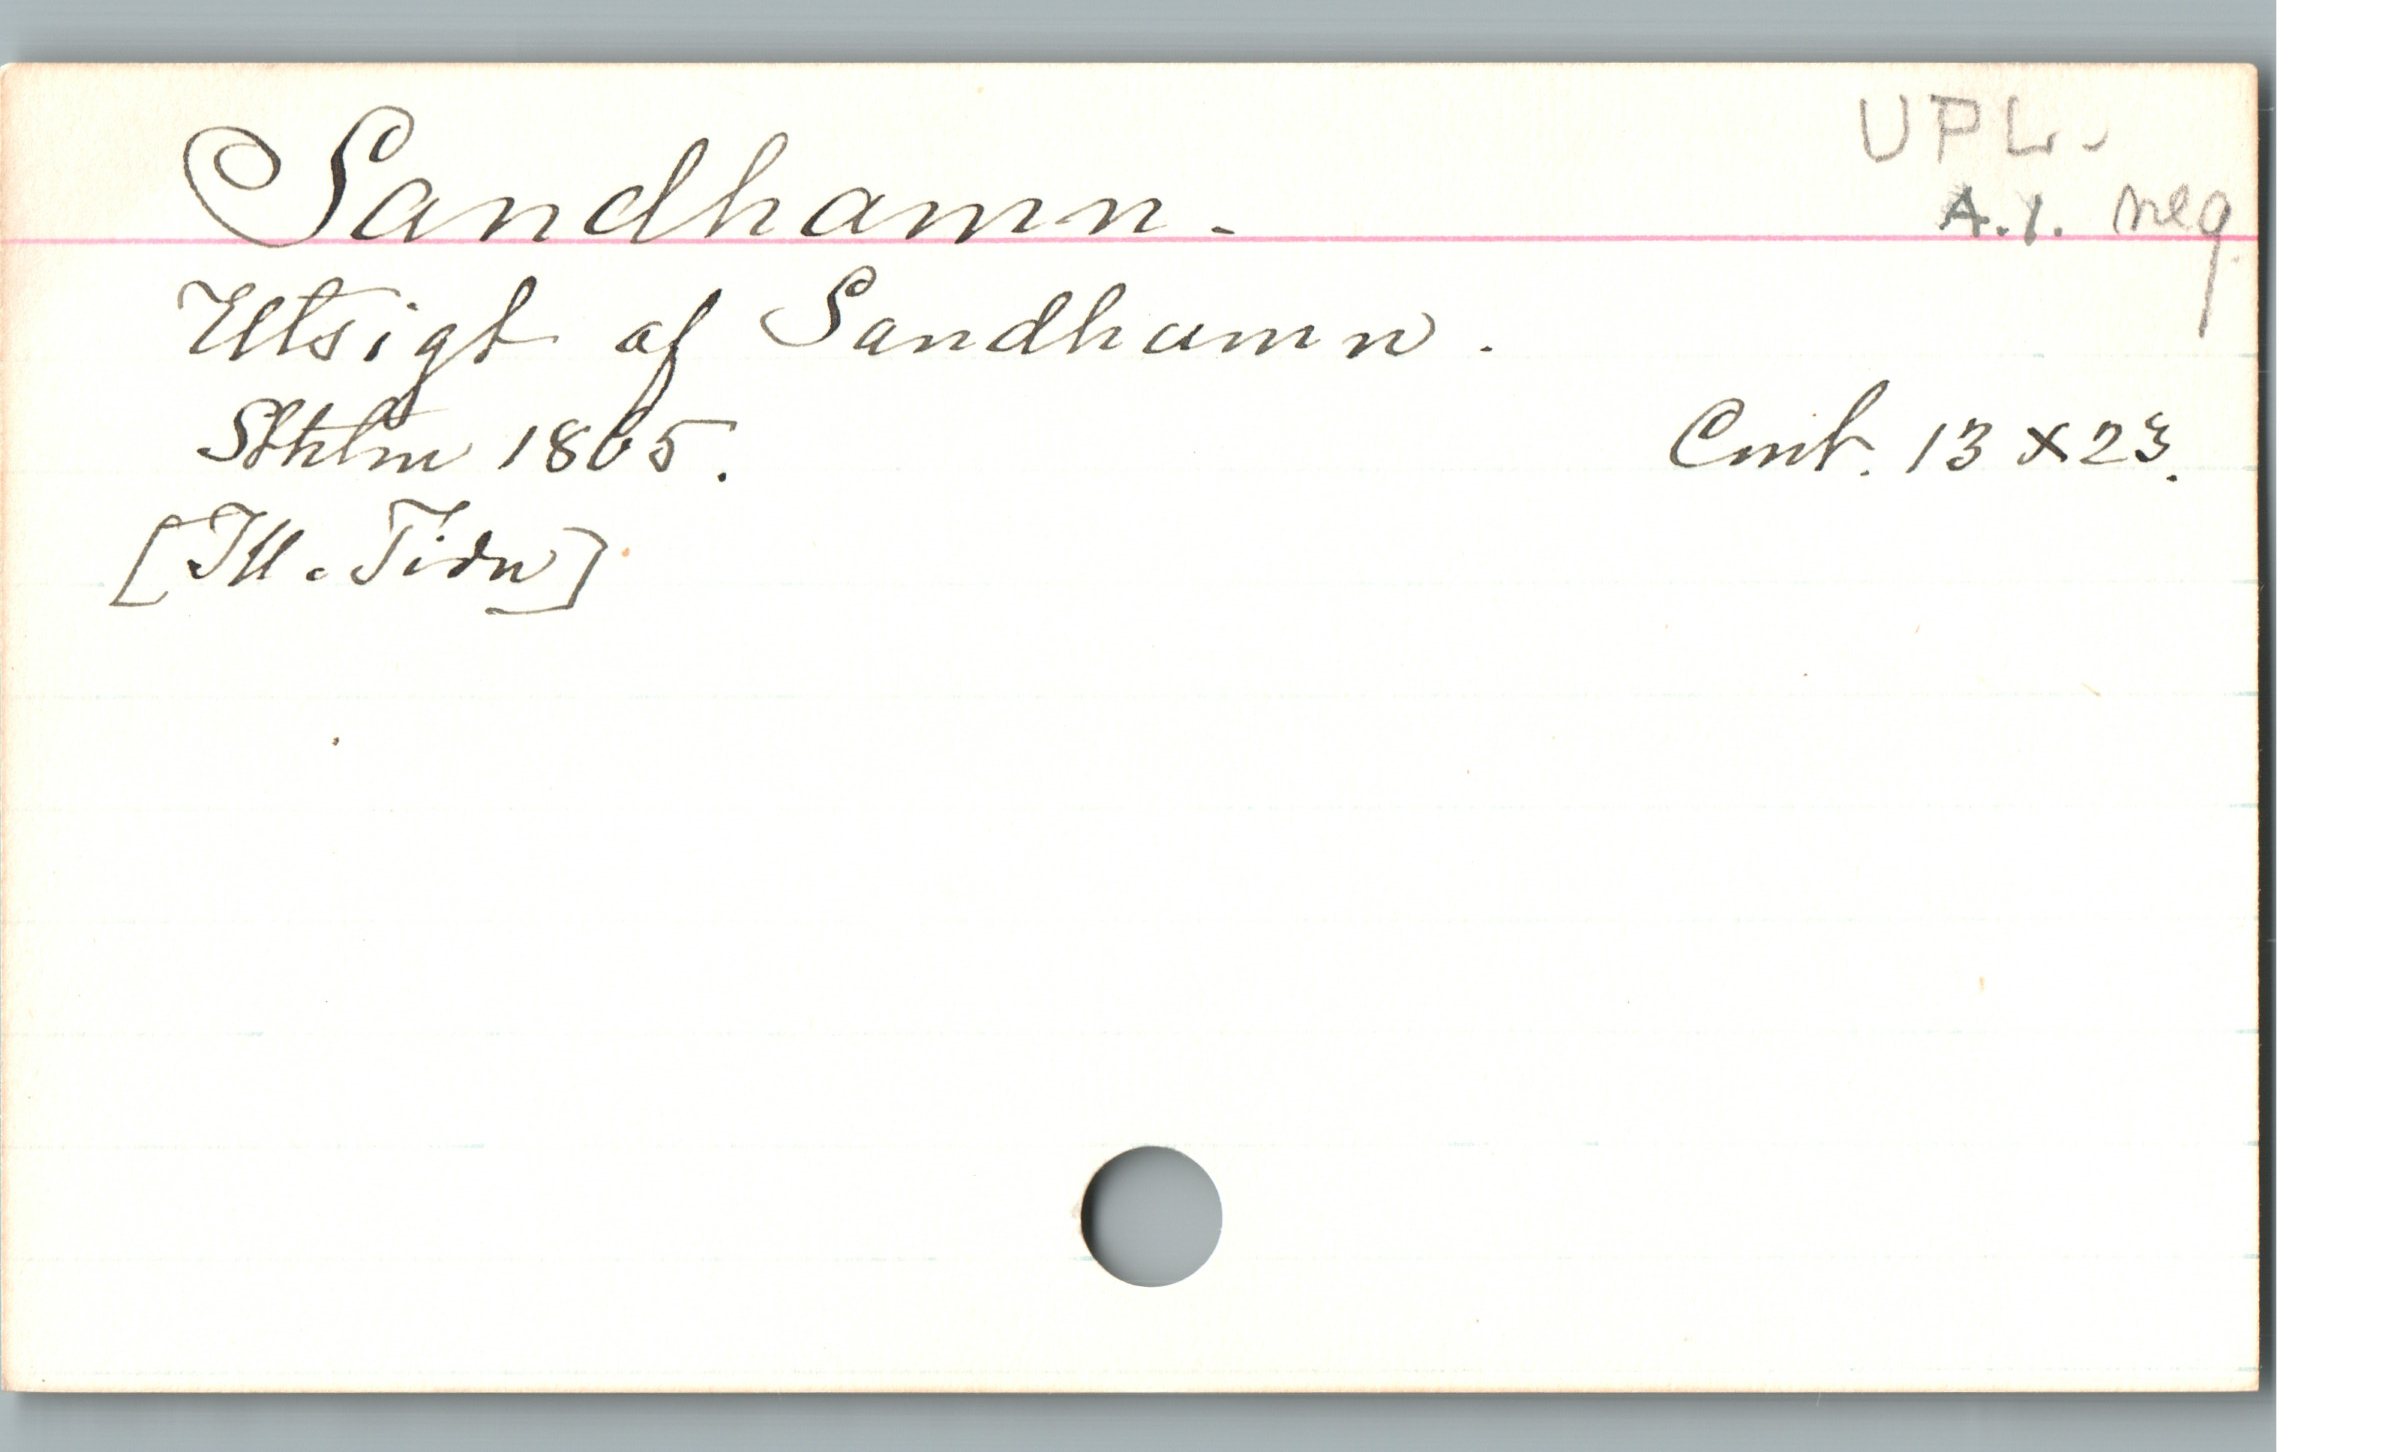 Sandhamn.
UPL.
A.1. neg
Utsigt af Sandhamn.
Sthlm 1865.
Cmt. 13 x 23.
[Ill. Tidn]